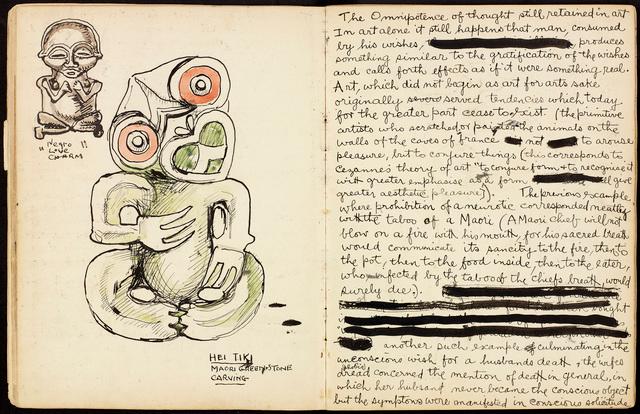 "Negro
Love
CHARM"
HEI TIKI
MAORI GREENSTONE
CARVING
The Omnipotence of thought still retained in art
In art alone it still happens that man, consumed
by his wishes, produces
something similar to the gratification of the wishes
and calls forth effects as if it were something real.
Art, which did not begin as art for arts sake
originally served tendencies which today
for the greater part cease to exist. (the primitive
artists who scratched or the animals on the
walls of the caves of france not to arouse
pleasure, but to conjure things (this corresponds to
Cezanne's theory of art "to form + to recognise it
with greater emphasise as a form will give
greater aesthetic pleasure). The previous example,
where prohibition of a neurotic corresponded
with the taboo of a Maori (A Maori chief will not
blow on a fire with his mouth, for his sacred breath
would communicate its sancity to the fire, then to
the pot, then to the food inside, then to the eater,
who infected by the taboo of the chiefs breath, would
surely die).
another such example culminating in the
unconscious wish for a husbands death, the wifes
dread concerned the mention of death in general, in
which her husband never became the conscious object
but the symptoms were manifested in conscious solicitude